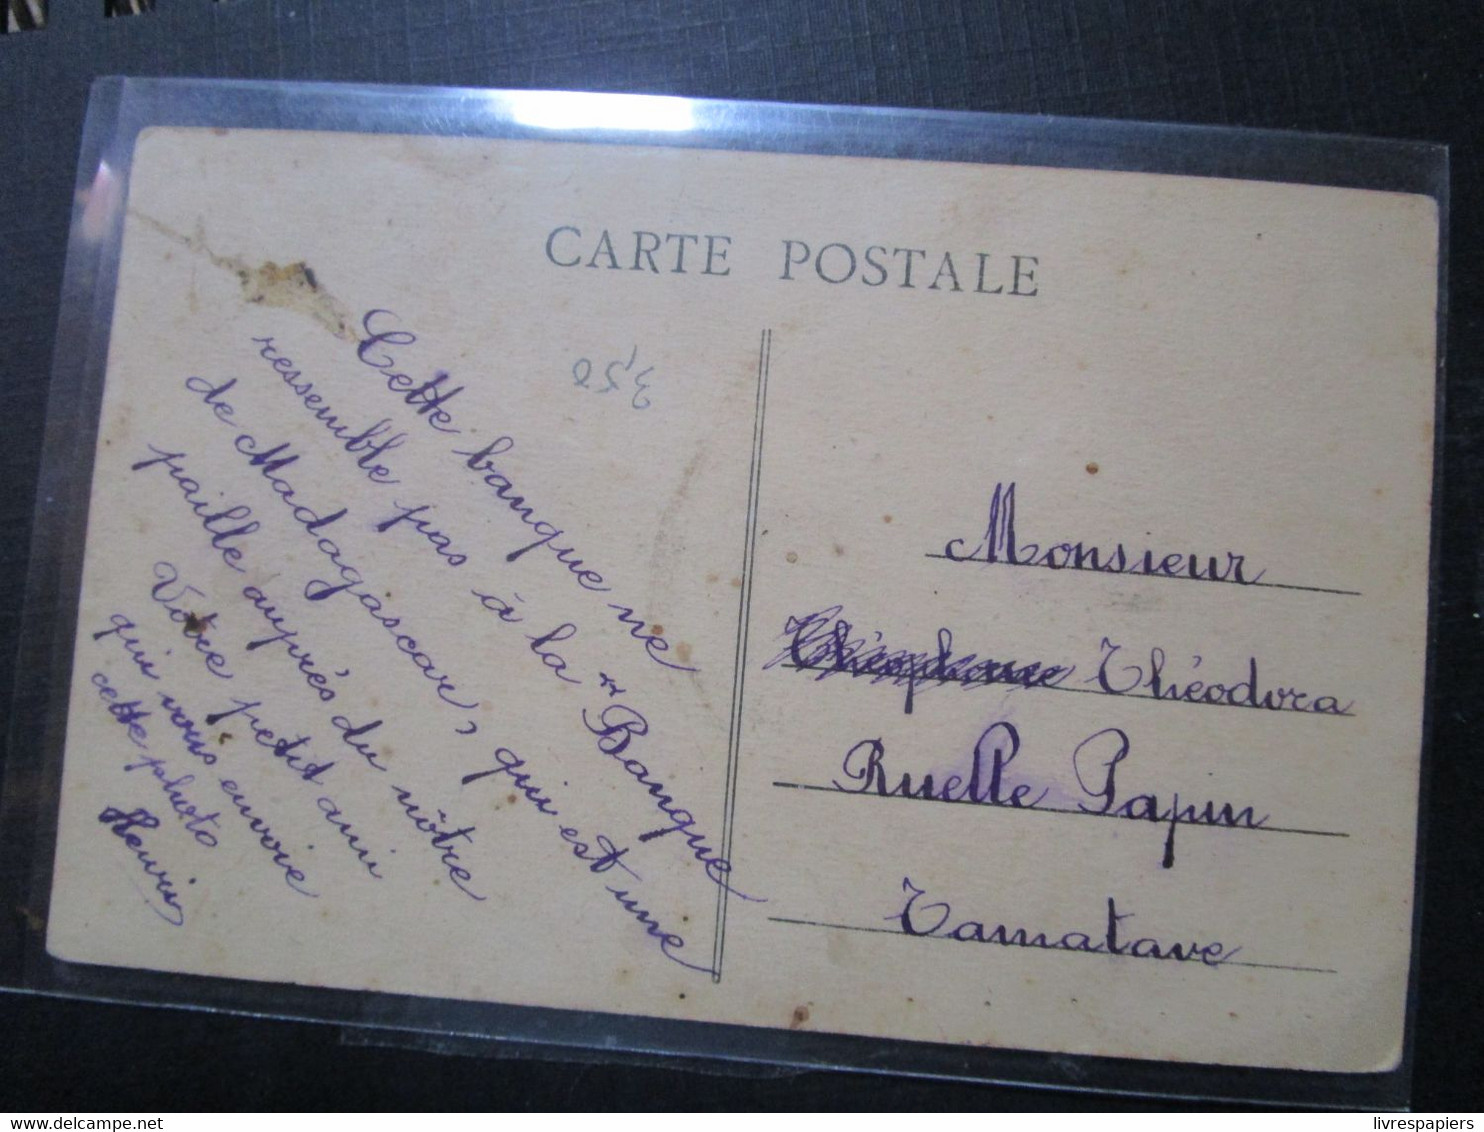 CARTE POSTALE
3,50
Cette banque ne
ressemble pas à la "Banque
de Madagascar", qui est une
paille auprès du nôtre
Votre petit ami
qui vous envoie
cette photo
Henri
Monsieur
Théodora
Ruelle Papin
Tamatave
delcampe.net
livrespapiers